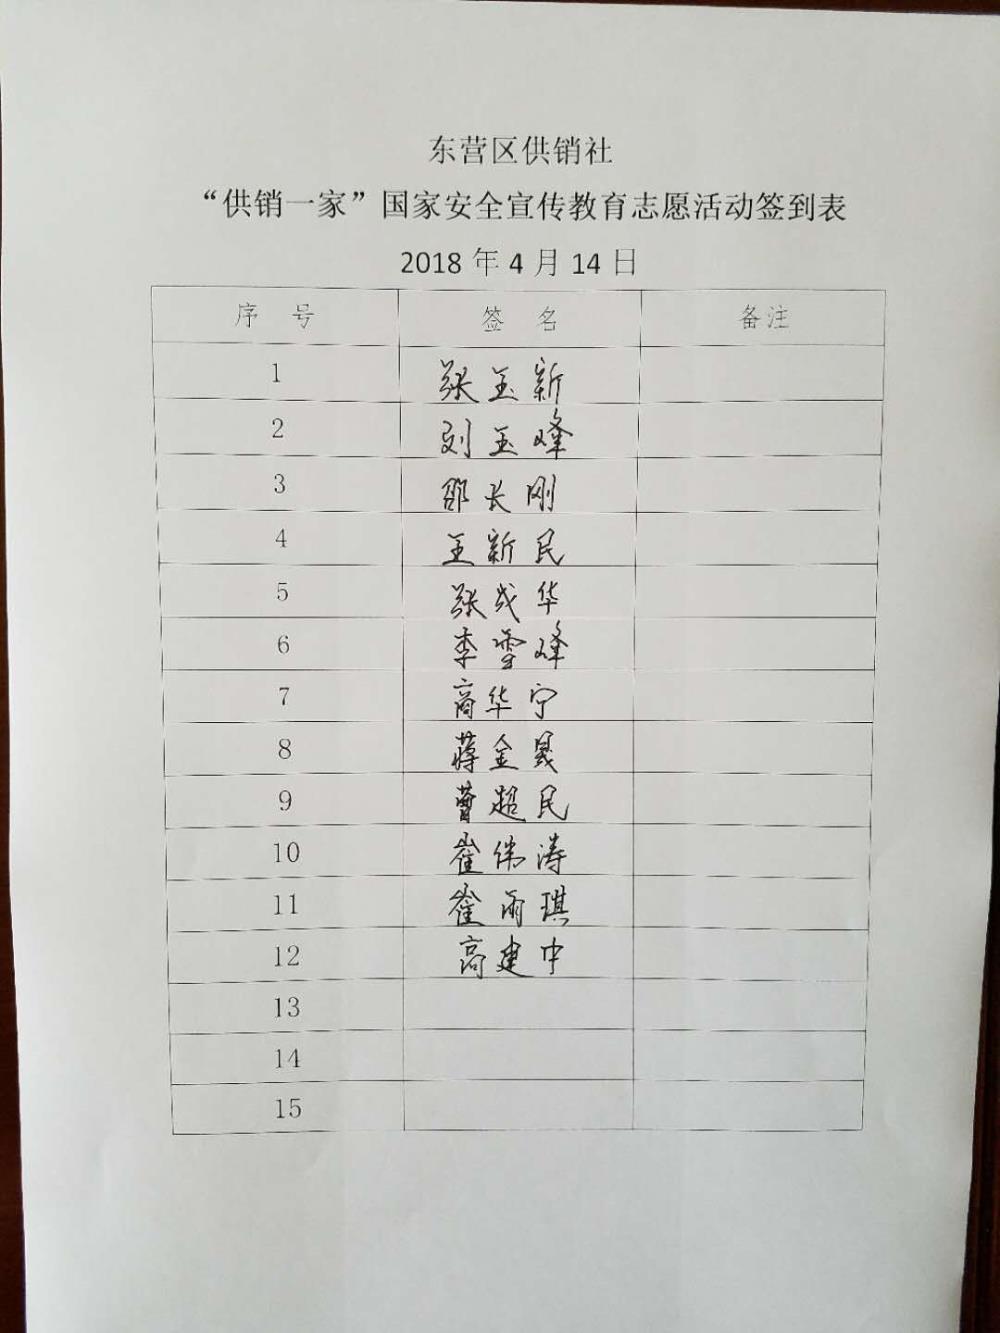 东营区供销社
“供销一家”国家安全宣传教育志愿活动签到表
2018 年 4 月 14 日
序 号 签 名 备注
1 张玉新
2 刘玉峰
3 邵长刚
4 王新民
5 张成华
6 李雪峰
7 商华宁
8 蒋金晟
9 曹超民
10 崔伟涛
11 崔雨琪
12 高建中
13
14
15